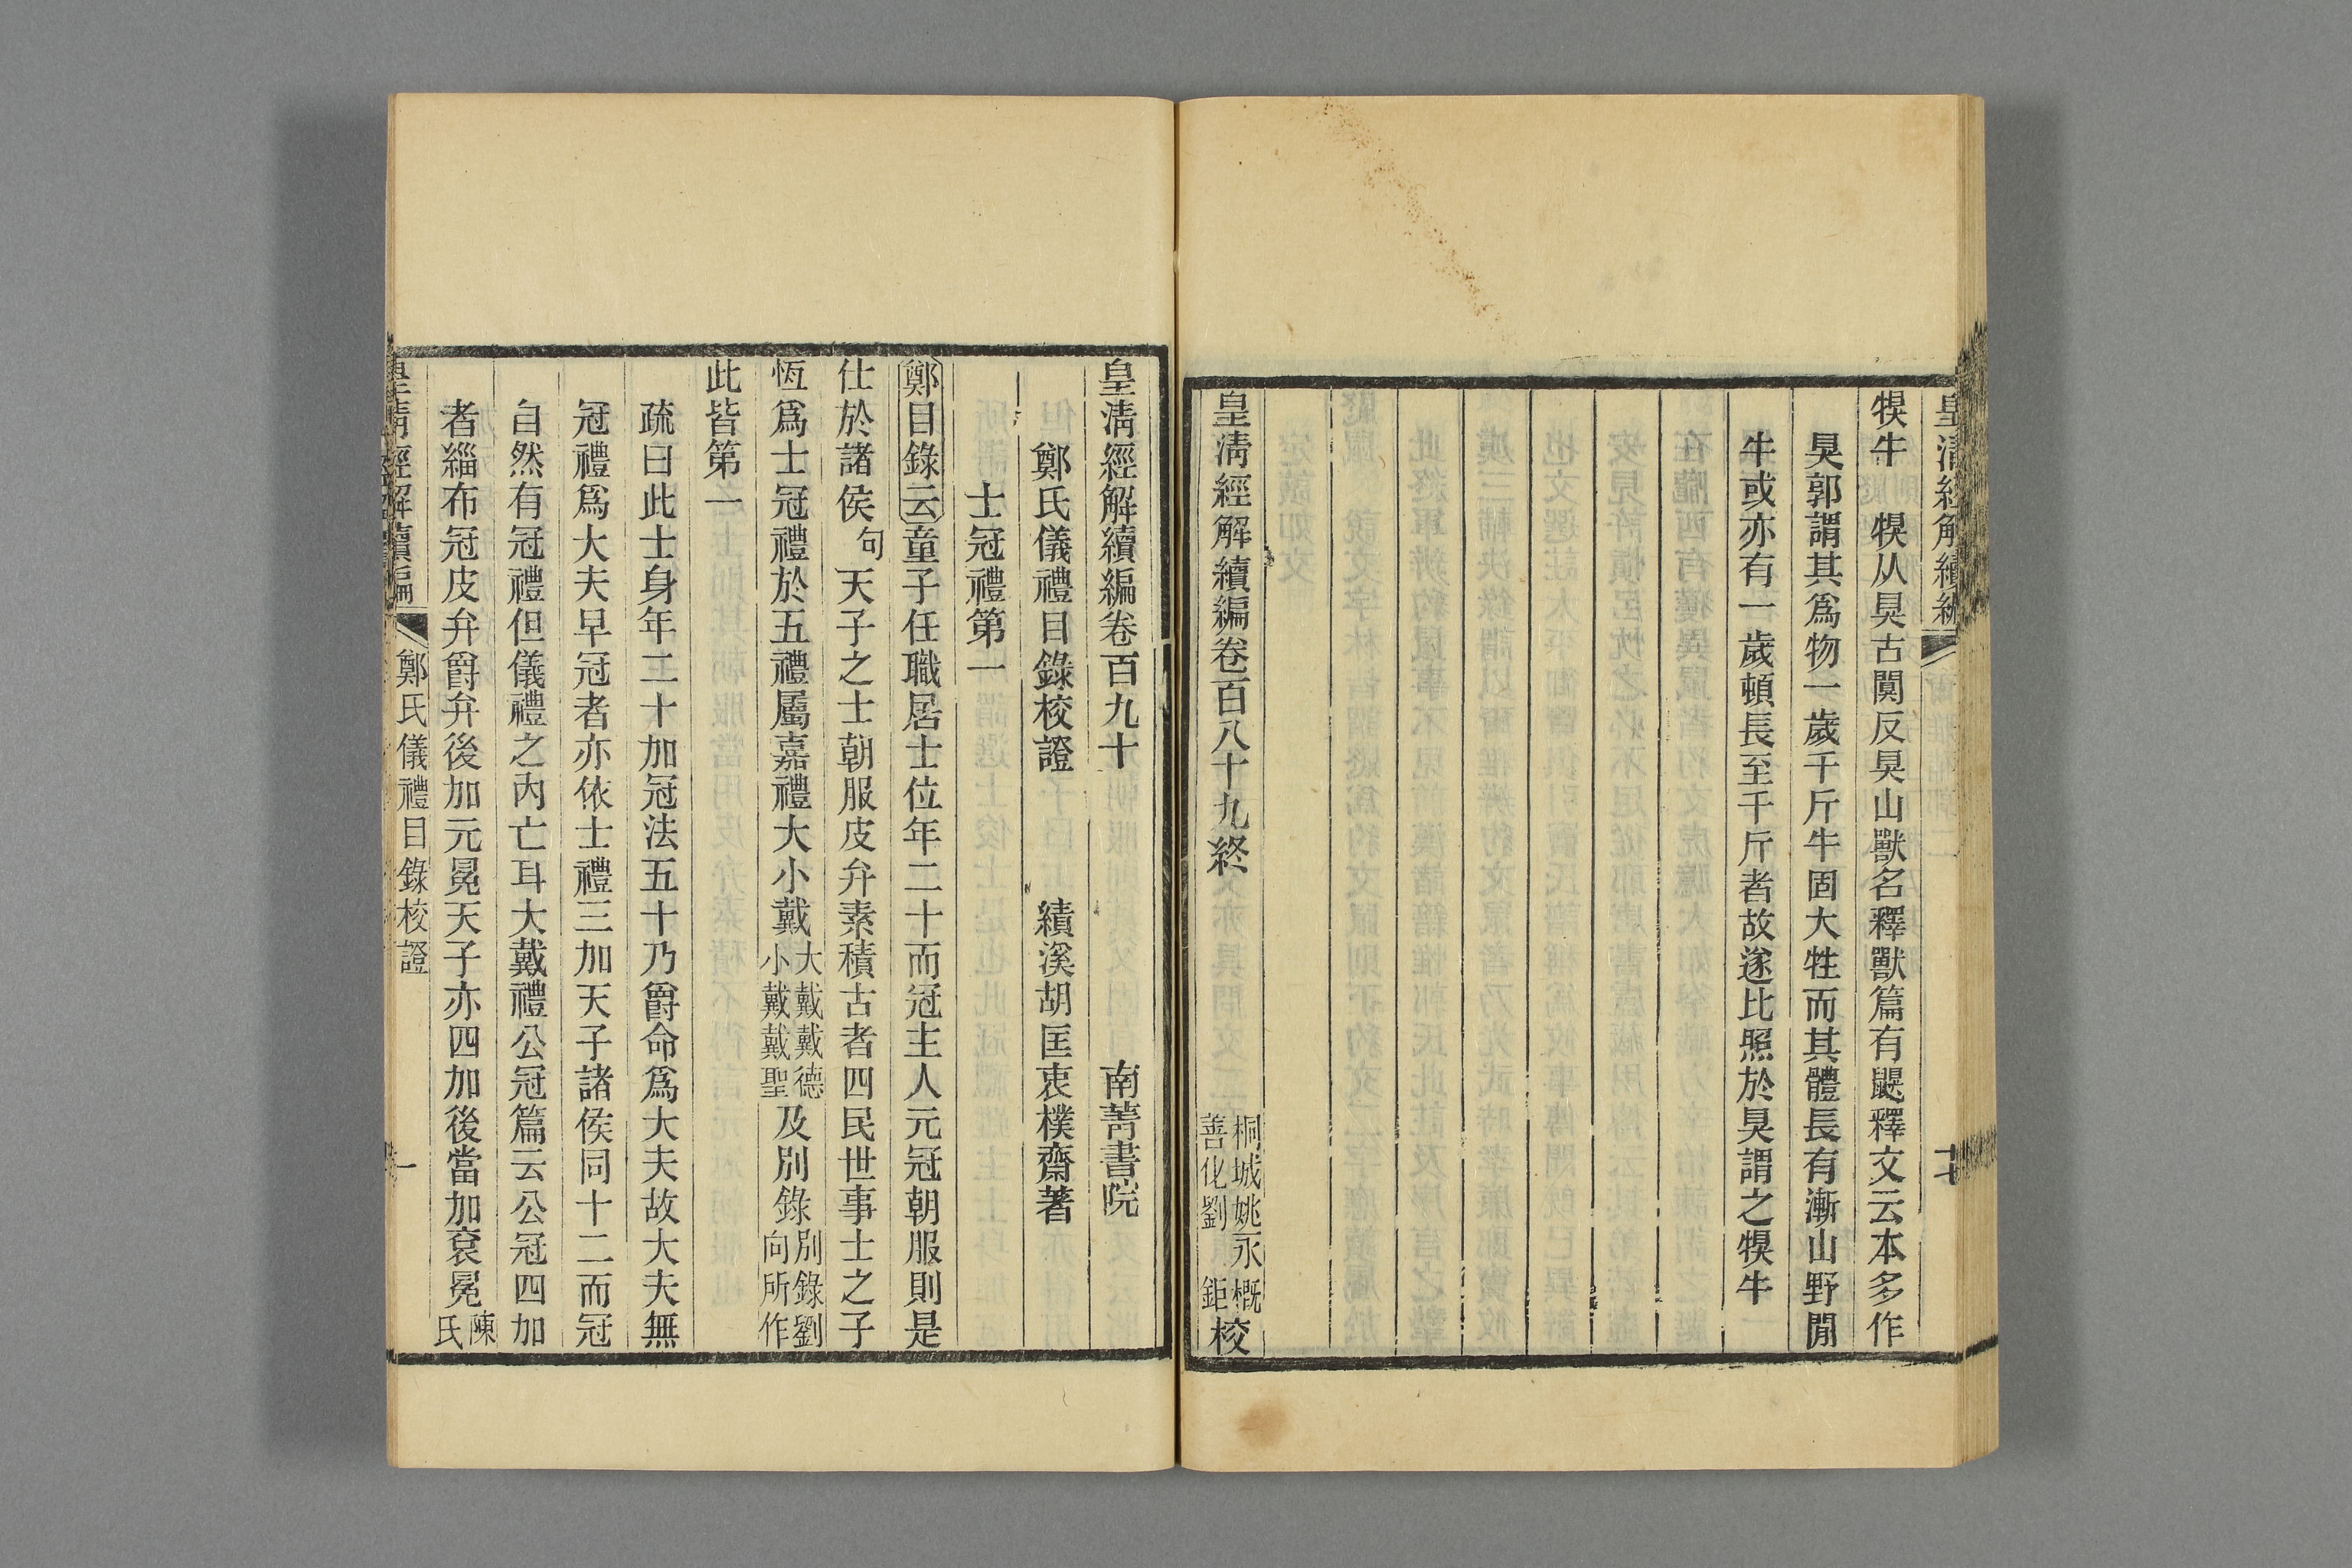 犑牛　犑从狊古闃反狊山獸名釋獸篇有鼳釋文云本多作
狊郭謂其爲物一歲千斤牛固大牲而其體長有漸山野閒
牛或亦有一歲頓長至千斤者故遂比照於狊謂之犑牛
皇淸經解續編卷一百八十九終
桐城姚永概
善化劉　鉅校
皇淸經解續編卷百九十　南菁書院
鄭氏儀禮目錄校證　績溪胡匡衷樸齋著
士冠禮第一
鄭目錄云童子任職居士位年二十而冠主人元冠朝服則是
仕於諸侯句天子之士朝服皮弁素積古者四民世事士之子
恆爲士冠禮於五禮屬嘉禮大小戴大戴戴德小戴戴聖及別錄別錄劉向所作
此皆第一
疏曰此士身年二十加冠法五十乃爵命爲大夫故大夫無
冠禮爲大夫早冠者亦依士禮三加天子諸侯同十二而冠
自然有冠禮但儀禮之內亡耳大戴禮公冠篇云公冠四加
者緇布冠皮弁爵弁後加元冕天子亦四加後當加袞冕陳氏
皇淸經解續編　鄭氏儀禮目錄校證　一